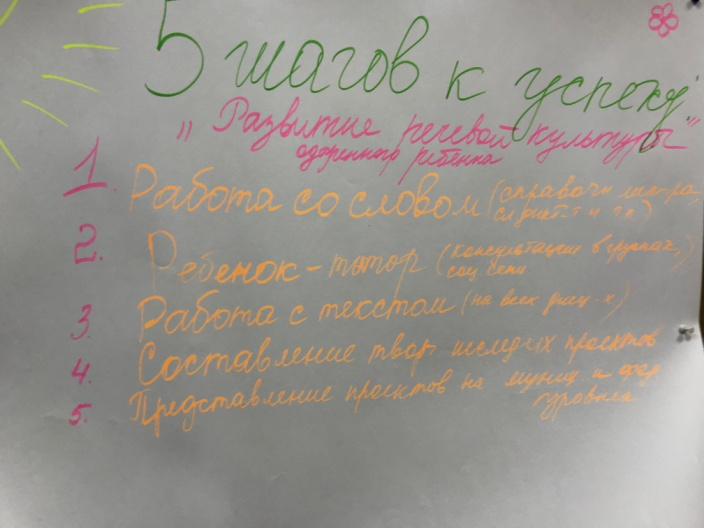 5 шагов к успеху!
"Развитие речевой культуры"
одаренного ребенка
1. Работа со словом (справочн лит-ра,
и т п)
2. Ребенок-тьютор (консультации в группах,)
соц сети
3. Работа с текстом (на всех
4. Составление твор. исслед-их проектов
5. Представление проектов на муниц. и фед
уровнях